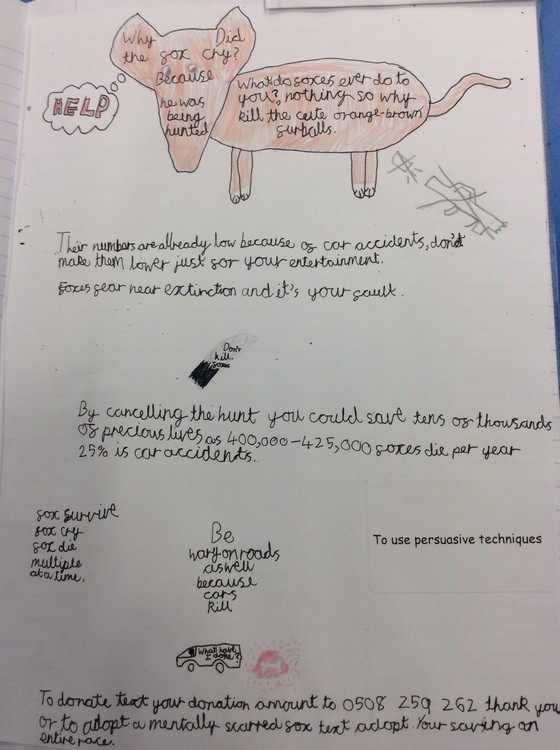 Why Did
the fox cry?
Because
he was
being
hunted
HELP
What do foxes ever do to
you? nothing so why
kill the cute orange-brown
furballs.
Their numbers are allready low because of car accidents, don't
make them lower just for your entertainment.
foxes fear near extinction and it's your fault.
Don't
kill
foxes
By cancelling the hunt you could save tens of thousands
of precious lives as 400,000-425,000 foxes die per year
25% is car accidents.
fox survive
fox cry
fox die
multiple
at a time.
Be
wary on roads
aswell
because
cars
kill
To use persuasive techniques
What have
I done?
To donate text your donation amount to 0508 259 262 thank you
or to adopt a mentally scarred fox text adopt. Your saving an
entire race.